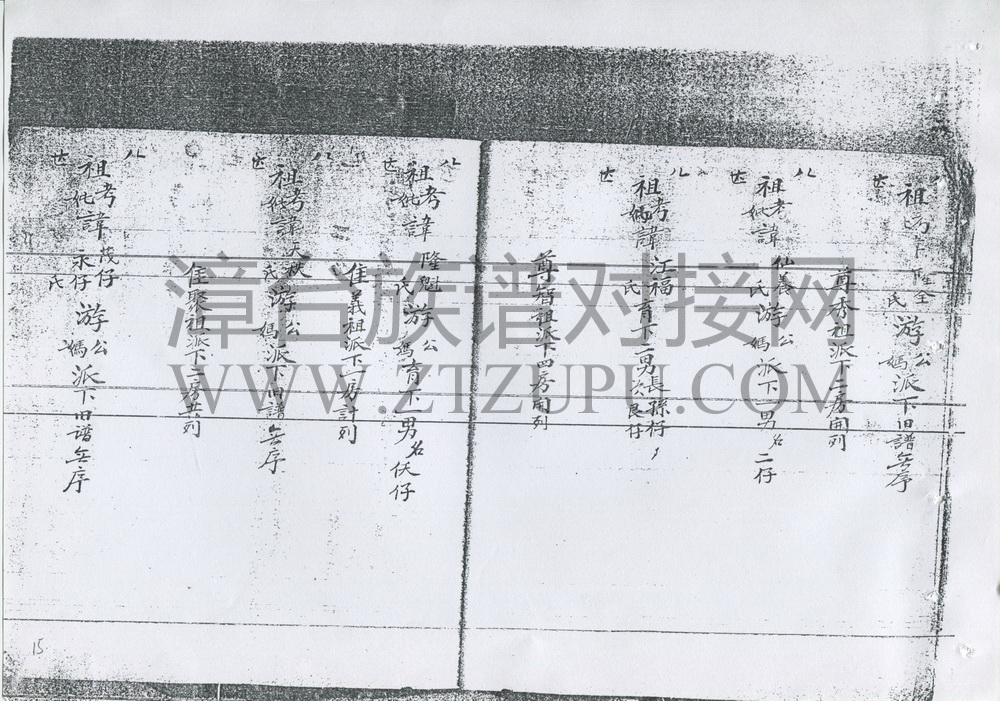 八世
祖
氏
游
公媽派下旧譜無序
尊秀祖派下三房開列
八世
祖考妣諱仙養
氏
游公媽派下一男名二仔
八世
祖考媽諱汪福
氏
育下二男長孫仔次良仔
尊智祖派下四房開列
八世
祖考妣諱隆魁
氏
游公媽育下一男名仸仔
隹義祖派下一房計列
八世
祖考妣諱天秋
氏
游公媽派下旧譜無序
隹聚祖派下二房廾列
八世
祖考妣諱茂仔永仔
氏
游公媽派下旧谱無序
15
漳台族谱对接网
WWW.ZTZUPU.COM